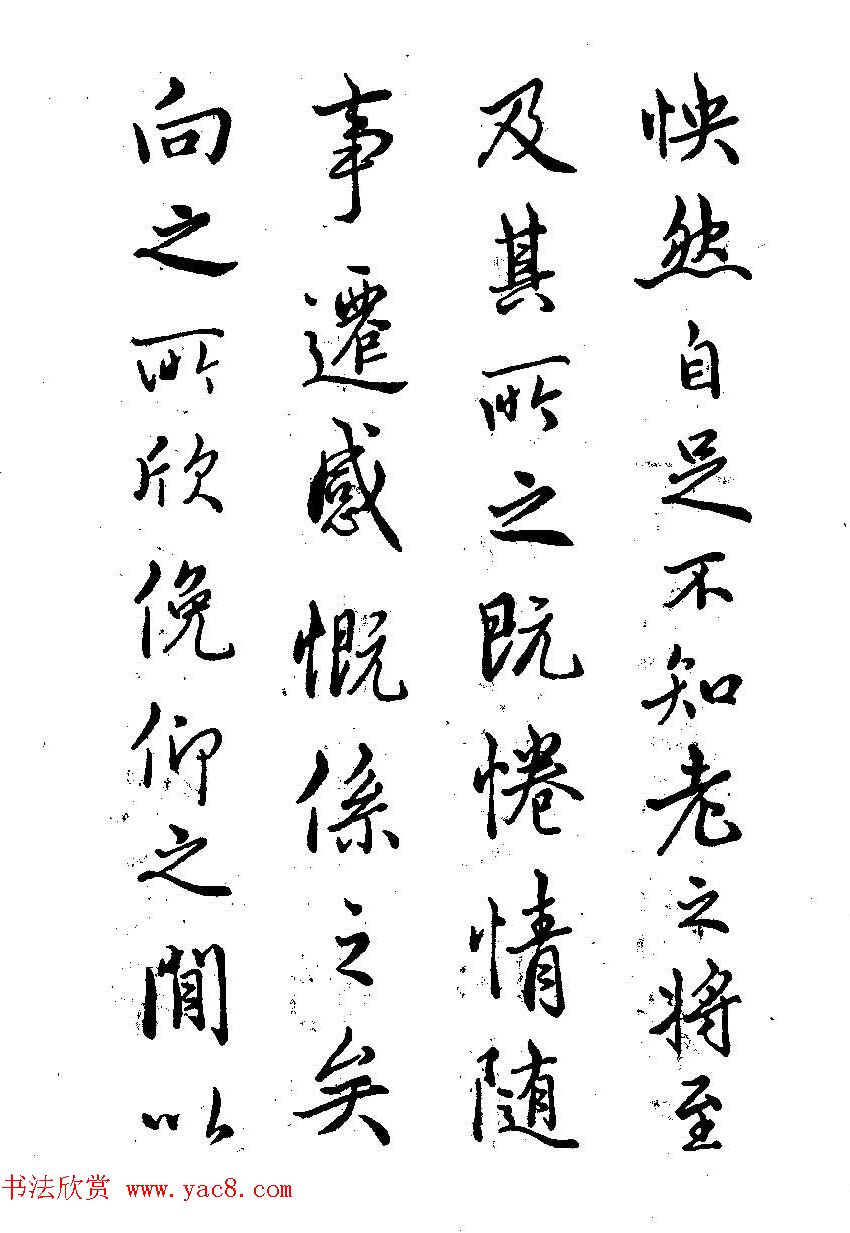 怏然自足不知老之将至
及其所之既惓情随
事遷感慨係之矣
向之所欣俛仰之閒以
书法欣赏 www.yac8.com